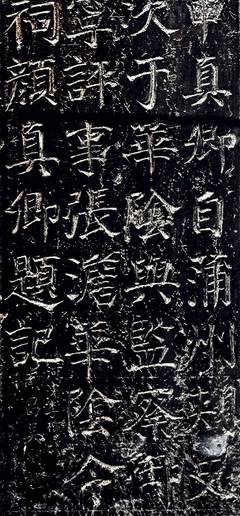 申真卿自蒲州刺史
次于華陰與監察御
寧評事張澹華陰令
祠顏真卿題記